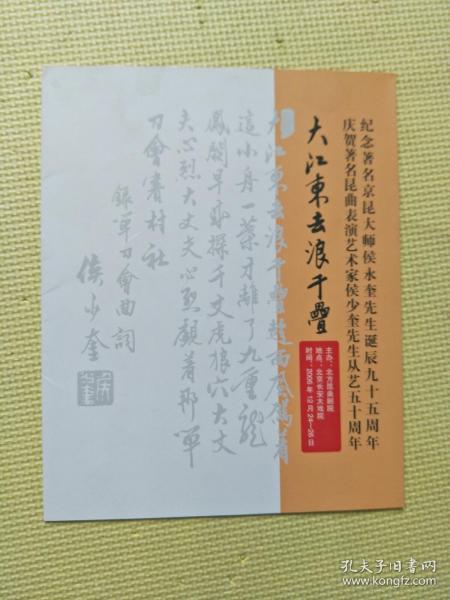 纪念著名京昆大师侯永奎先生诞辰九十五周年
庆贺著名昆曲表演艺术家侯少奎先生从艺五十周年
大江东去浪千叠
主办：北方昆曲剧院
地点：北京长安大戏院
时间：2006年12月24—26日
大江東去浪千疊趁西風駕着
這小舟一葉才離了九重龍
鳳闕早來探千丈虎狼穴大丈
夫心烈大丈夫心烈覷着那單
刀會賽村社
錄單刀會曲詞
侯少奎
孔夫子旧书网
www.kongfz.com